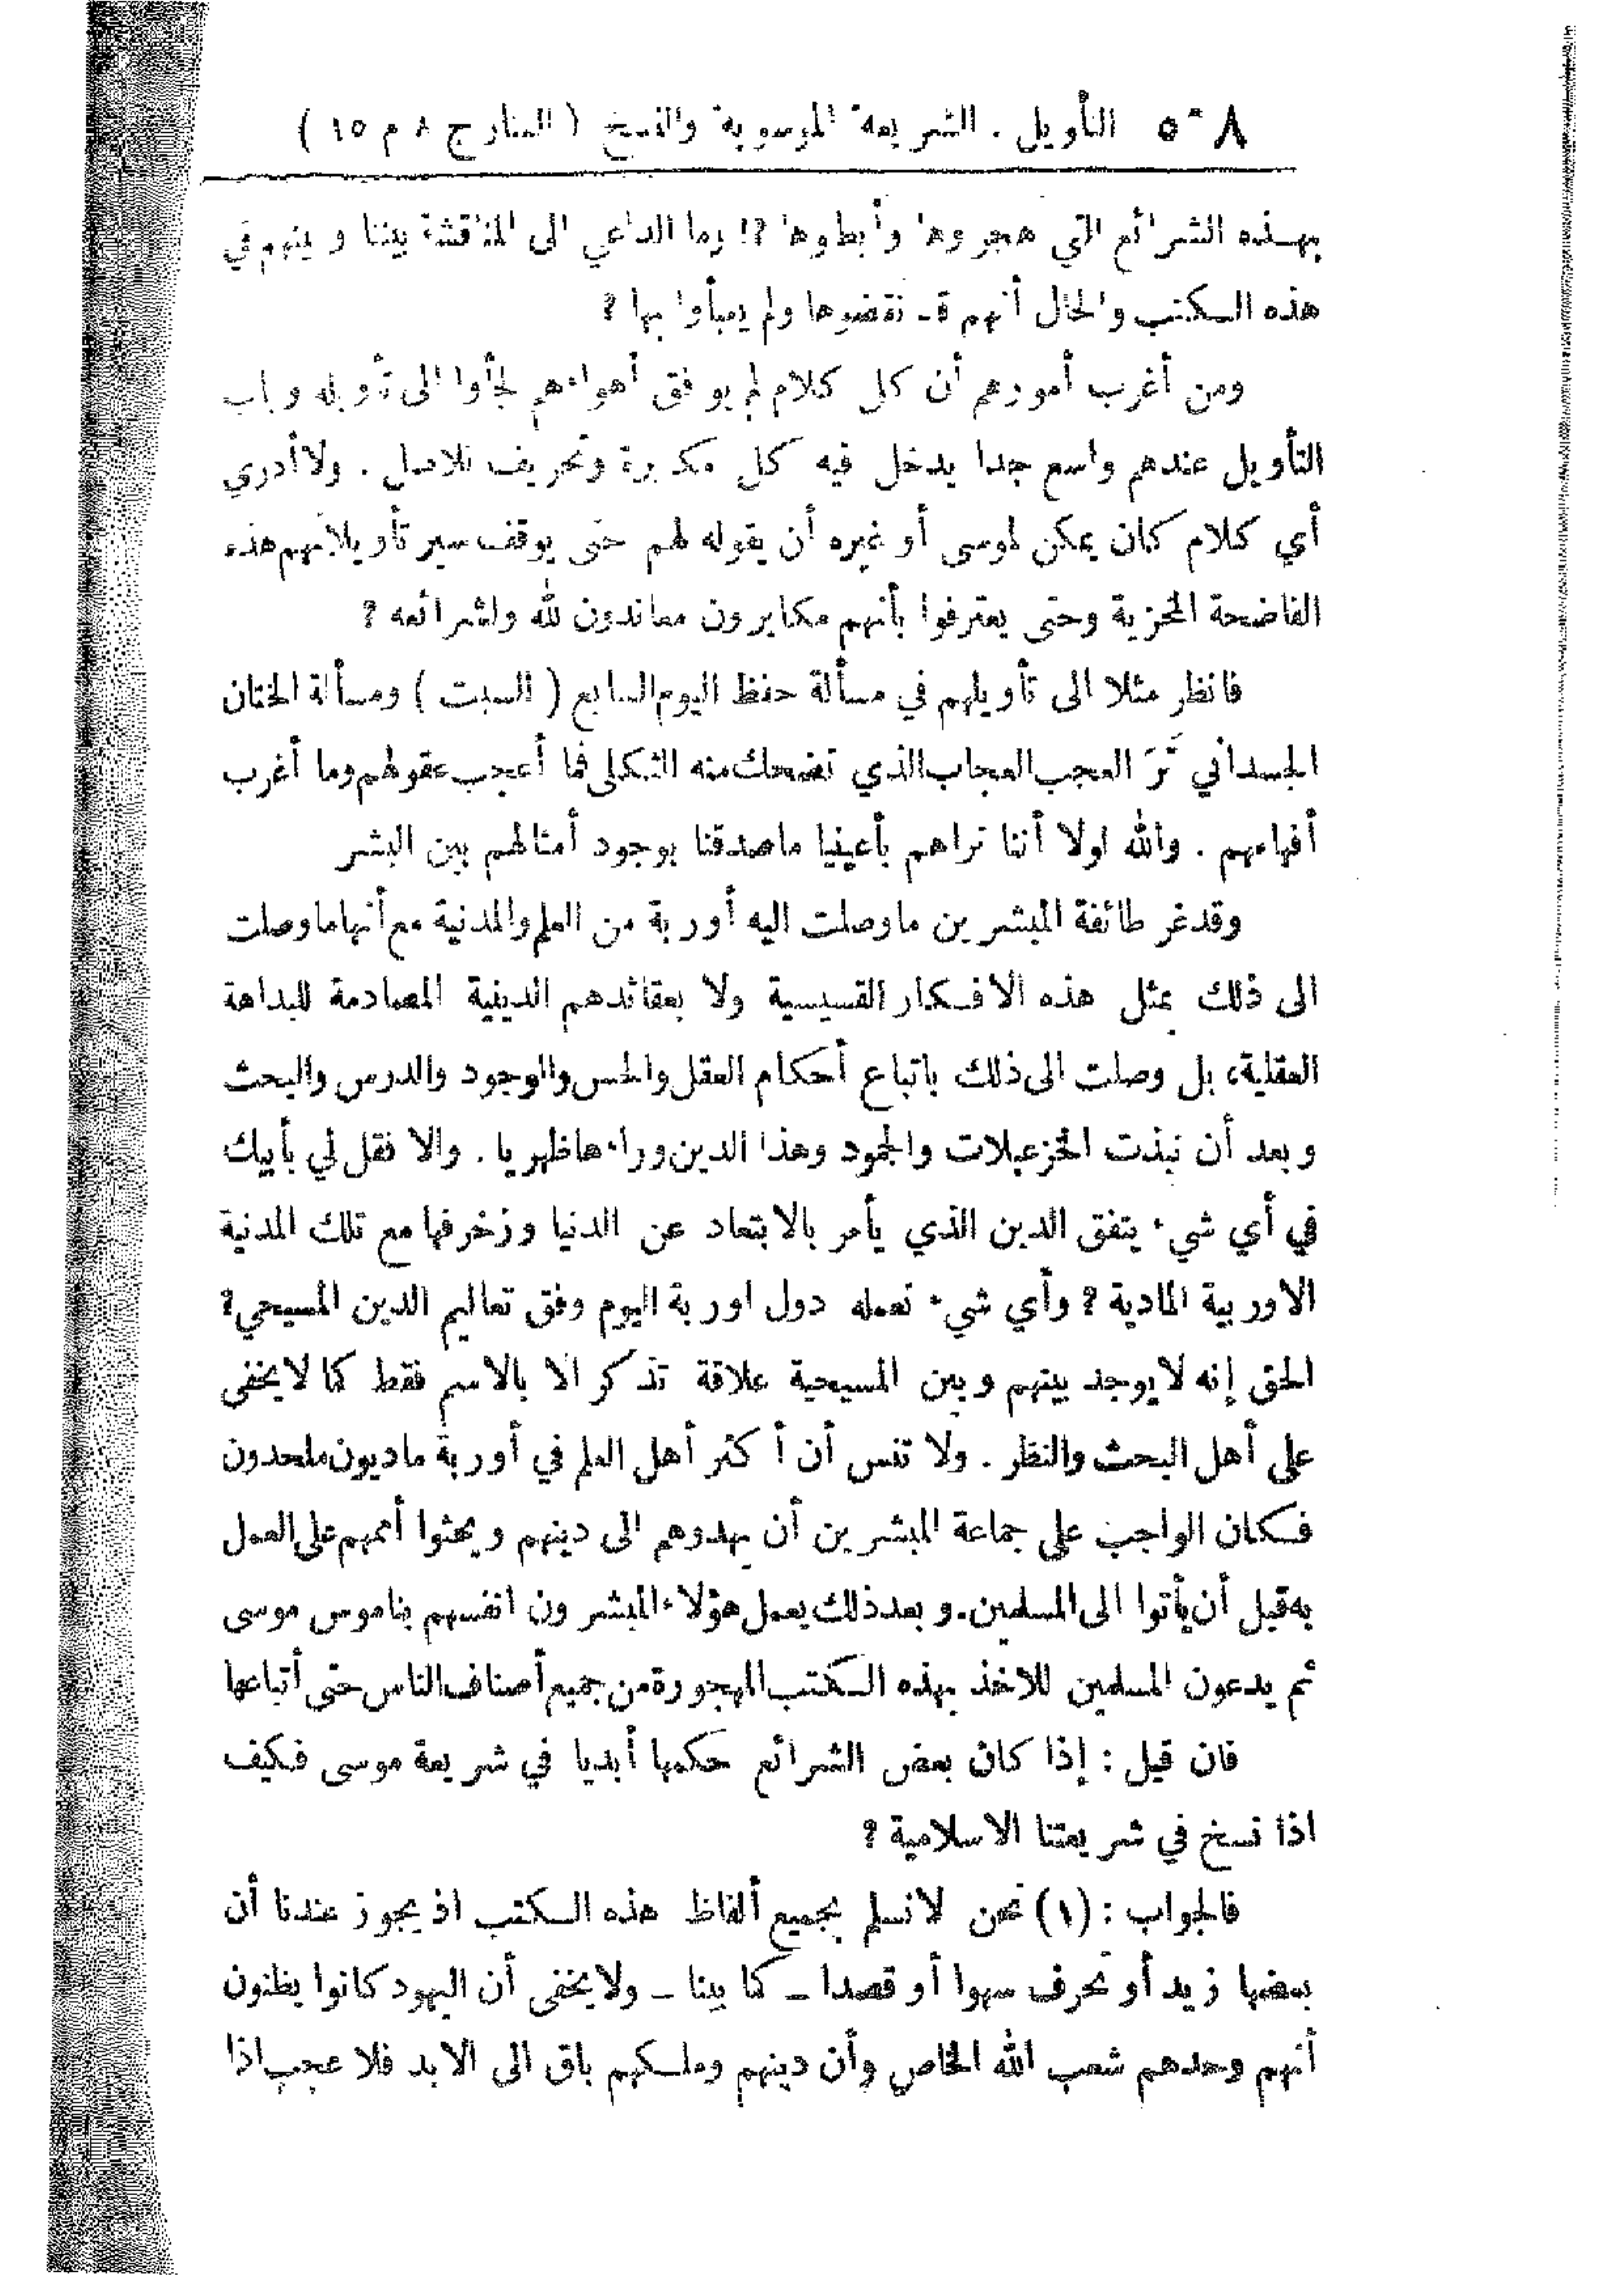 ٥٠٨ التأويل . الشريعة الموسوية والنسخ ( المنار ج ٨ م ١٥ )
بهذه الشرائع التي هجروها وأبطلوها ?! وما الداعي الى المناقشة بيننا وبينهم في
هذه الكتب والحال أنهم قد نقضوها ولم يعبأوا بها ?
ومن أغرب أمورهم أن كل كلام لم يوافق أهواءهم لجأوا الى تأويله وباب
التأويل عندهم واسع جدا يدخل فيه كل مكابرة وتحريف للاصل . ولا أدري
أي كلام كان يمكن لموسى أو غيره أن يقوله لهم حتى يوقف سير تأويلاتهم هذه
الفاضحة المخزية وحتى يعترفوا بأنهم مكابرون معاندون لله ولشرائعه ?
فانظر مثلا الى تأويلهم في مسألة حفظ اليوم السابع ( السبت ) ومسألة الختان
الجسداني تَرَ العجب العجاب الذي تضحك منه الثكلى فما أعجب عقولهم وما أغرب
أفهامهم . والله لولا أننا نراهم بأعيننا ماصدقنا بوجود أمثالهم بين البشر
وقد غر طائفة المبشرين ما وصلت اليه أوربة من العلم والمدنية مع أنها ما وصلت
الى ذلك بمثل هذه الافكار القسيسية ولا بعقائدهم الدينية المصادمة للبداهة
العقلية، بل وصلت الى ذلك باتباع أحكام العقل والحس والوجود والدرس والبحث
وبعد أن نبذت الخزعبلات والجمود وهذا الدين وراءها ظهريا . والا فقل لي بأبيك
في أي شيء يتفق الدين الذي يأمر بالابتعاد عن الدنيا وزخرفها مع تلك المدنية
الاوربية المادية ? وأي شيء تعمله دول اوربة اليوم وفق تعاليم الدين المسيحي ?
الحق إنه لا يوجد بينهم وبين المسيحية علاقة تذكر الا بالاسم فقط كما لا يخفى
على أهل البحث والنظر . ولا تنس أن أكثر أهل العلم في أوربة ماديون ملحدون
فكان الواجب على جماعة المبشرين أن يهدوهم الى دينهم ويحثوا أممهم على العمل
به قبل أن يأتوا الى المسلمين. وبعد ذلك يعمل هؤلاء المبشرون انفسهم بناموس موسى
ثم يدعون المسلمين للاخذ بهذه الكتب المهجورة من جميع أصناف الناس حتى أتباعها
فان قيل : إذا كان بعض الشرائع حكمها أبديا في شريعة موسى فكيف
اذا نسخ في شريعتنا الاسلامية ?
فالجواب : (١) نحن لا نسلم بجميع ألفاظ هذه الكتب اذ يجوز عندنا أن
بعضها زيد أو تحرف سهوا أو قصدا ـ كما بينا ـ ولا يخفى أن اليهود كانوا يظنون
أنهم وحدهم شعب الله الخاص وأن دينهم وملكهم باق الى الابد فلا عجب اذا